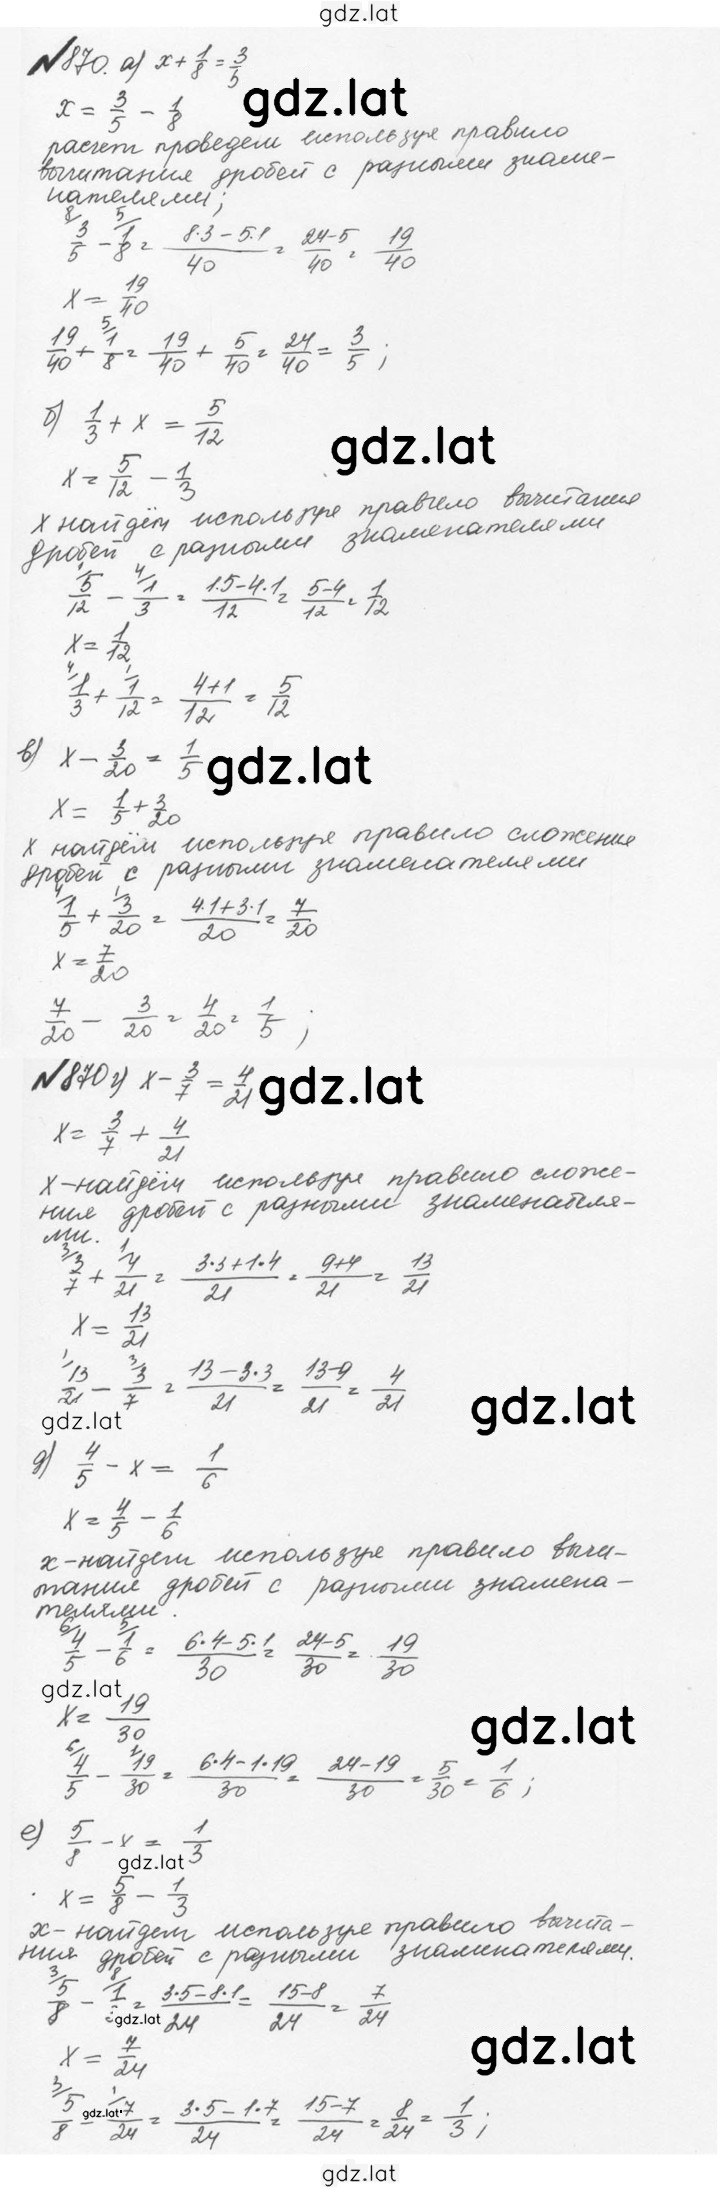 gdz.lat
№870. а) x + 1/8 = 3/5
x = 3/5 - 1/8
gdz.lat
расчет проведем используя правило
вычитания дробей с разными знаме-
нателями;
8/ 3/5 - 5/ 1/8 = (8·3 - 5·1)/40 = (24-5)/40 = 19/40
x = 19/40
19/40 + 5/ 1/8 = 19/40 + 5/40 = 24/40 = 3/5 ;
б) 1/3 + x = 5/12
gdz.lat
x = 5/12 - 1/3
x найдём используя правило вычитания
дробей с разными знаменателями
1/ 5/12 - 4/ 1/3 = (1·5-4·1)/12 = (5-4)/12 = 1/12
x = 1/12
4/ 1/3 + 1/ 1/12 = (4+1)/12 = 5/12
в) x - 3/20 = 1/5
gdz.lat
x = 1/5 + 3/20
x найдём используя правило сложение
дробей с разными знаменателями
4/ 1/5 + 1/ 3/20 = (4·1+3·1)/20 = 7/20
x = 7/20
7/20 - 3/20 = 4/20 = 1/5 ;
№870 г) x - 3/7 = 4/21
gdz.lat
x = 3/7 + 4/21
x-найдём используя правило сложе-
ния дробей с разными знаменателя-
ми.
3/ 3/7 + 1/ 4/21 = (3·3+1·4)/21 = (9+4)/21 = 13/21
x = 13/21
1/ 13/21 - 3/ 3/7 = (13-3·3)/21 = (13-9)/21 = 4/21
gdz.lat
gdz.lat
д) 4/5 - x = 1/6
x = 4/5 - 1/6
x-найдем используя правило вычи-
тания дробей с разными знамена-
телями.
6/ 4/5 - 5/ 1/6 = (6·4-5·1)/30 = (24-5)/30 = 19/30
gdz.lat
x = 19/30
gdz.lat
6/ 4/5 - 1/ 19/30 = (6·4-1·19)/30 = (24-19)/30 = 5/30 = 1/6 ;
е) 5/8 - x = 1/3
gdz.lat
x = 5/8 - 1/3
x-найдем используя правило вычита-
ния дробей с разными знаминателями.
3/ 5/8 - 8/ 1/3 = (3·5-8·1)/24 = (15-8)/24 = 7/24
gdz.lat
x = 7/24
gdz.lat
3/ 5/8 - 1/ 7/24 = (3·5-1·7)/24 = (15-7)/24 = 8/24 = 1/3 ;
gdz.lat
gdz.lat